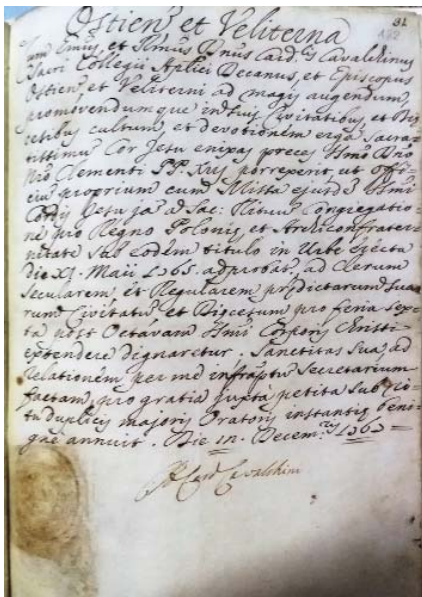 81
Ostien' et Veliterna
Cum Emus, et Rmus Dnus Card.lis Cavalchinus
Sacri Collegii Aplici Decanus, et Episcopus
Ostien' et Veliterni ad magis augendum,
promovendumque in suis Civitatibus et Diæ
cesibus cultum, et devotionem erga Sacra-
tissimum Cor Jesu enixas preces Smo Dno
Nro Clementi PP. XIII porrexerit, ut offi-
cium proprium cum Missa ejusdem Ssmi
Cordis Jesu ja a Sac: Rituum Congregatio-
ne pro Regno Poloniæ, et Archiconfrater-
nitate sub eodem titulo in Urbe erecta
Die XI. Maii 1765. adprobat. ad Clerum
Secularem, et Regularem prædictarum sua
rum Civitatum et Diæcesum pro feria sex-
ta post Octavam Ssmi Corporis Christi
extendere dignaretur. Sanctitas Sua, ad
relationem per me infraptum Secretarium
factam, pro gratia juxta petita sub ri-
tu duplicis majoris Oratoris instantis beni-
gne annuit. Die Decem.ris
Card Cavalchini